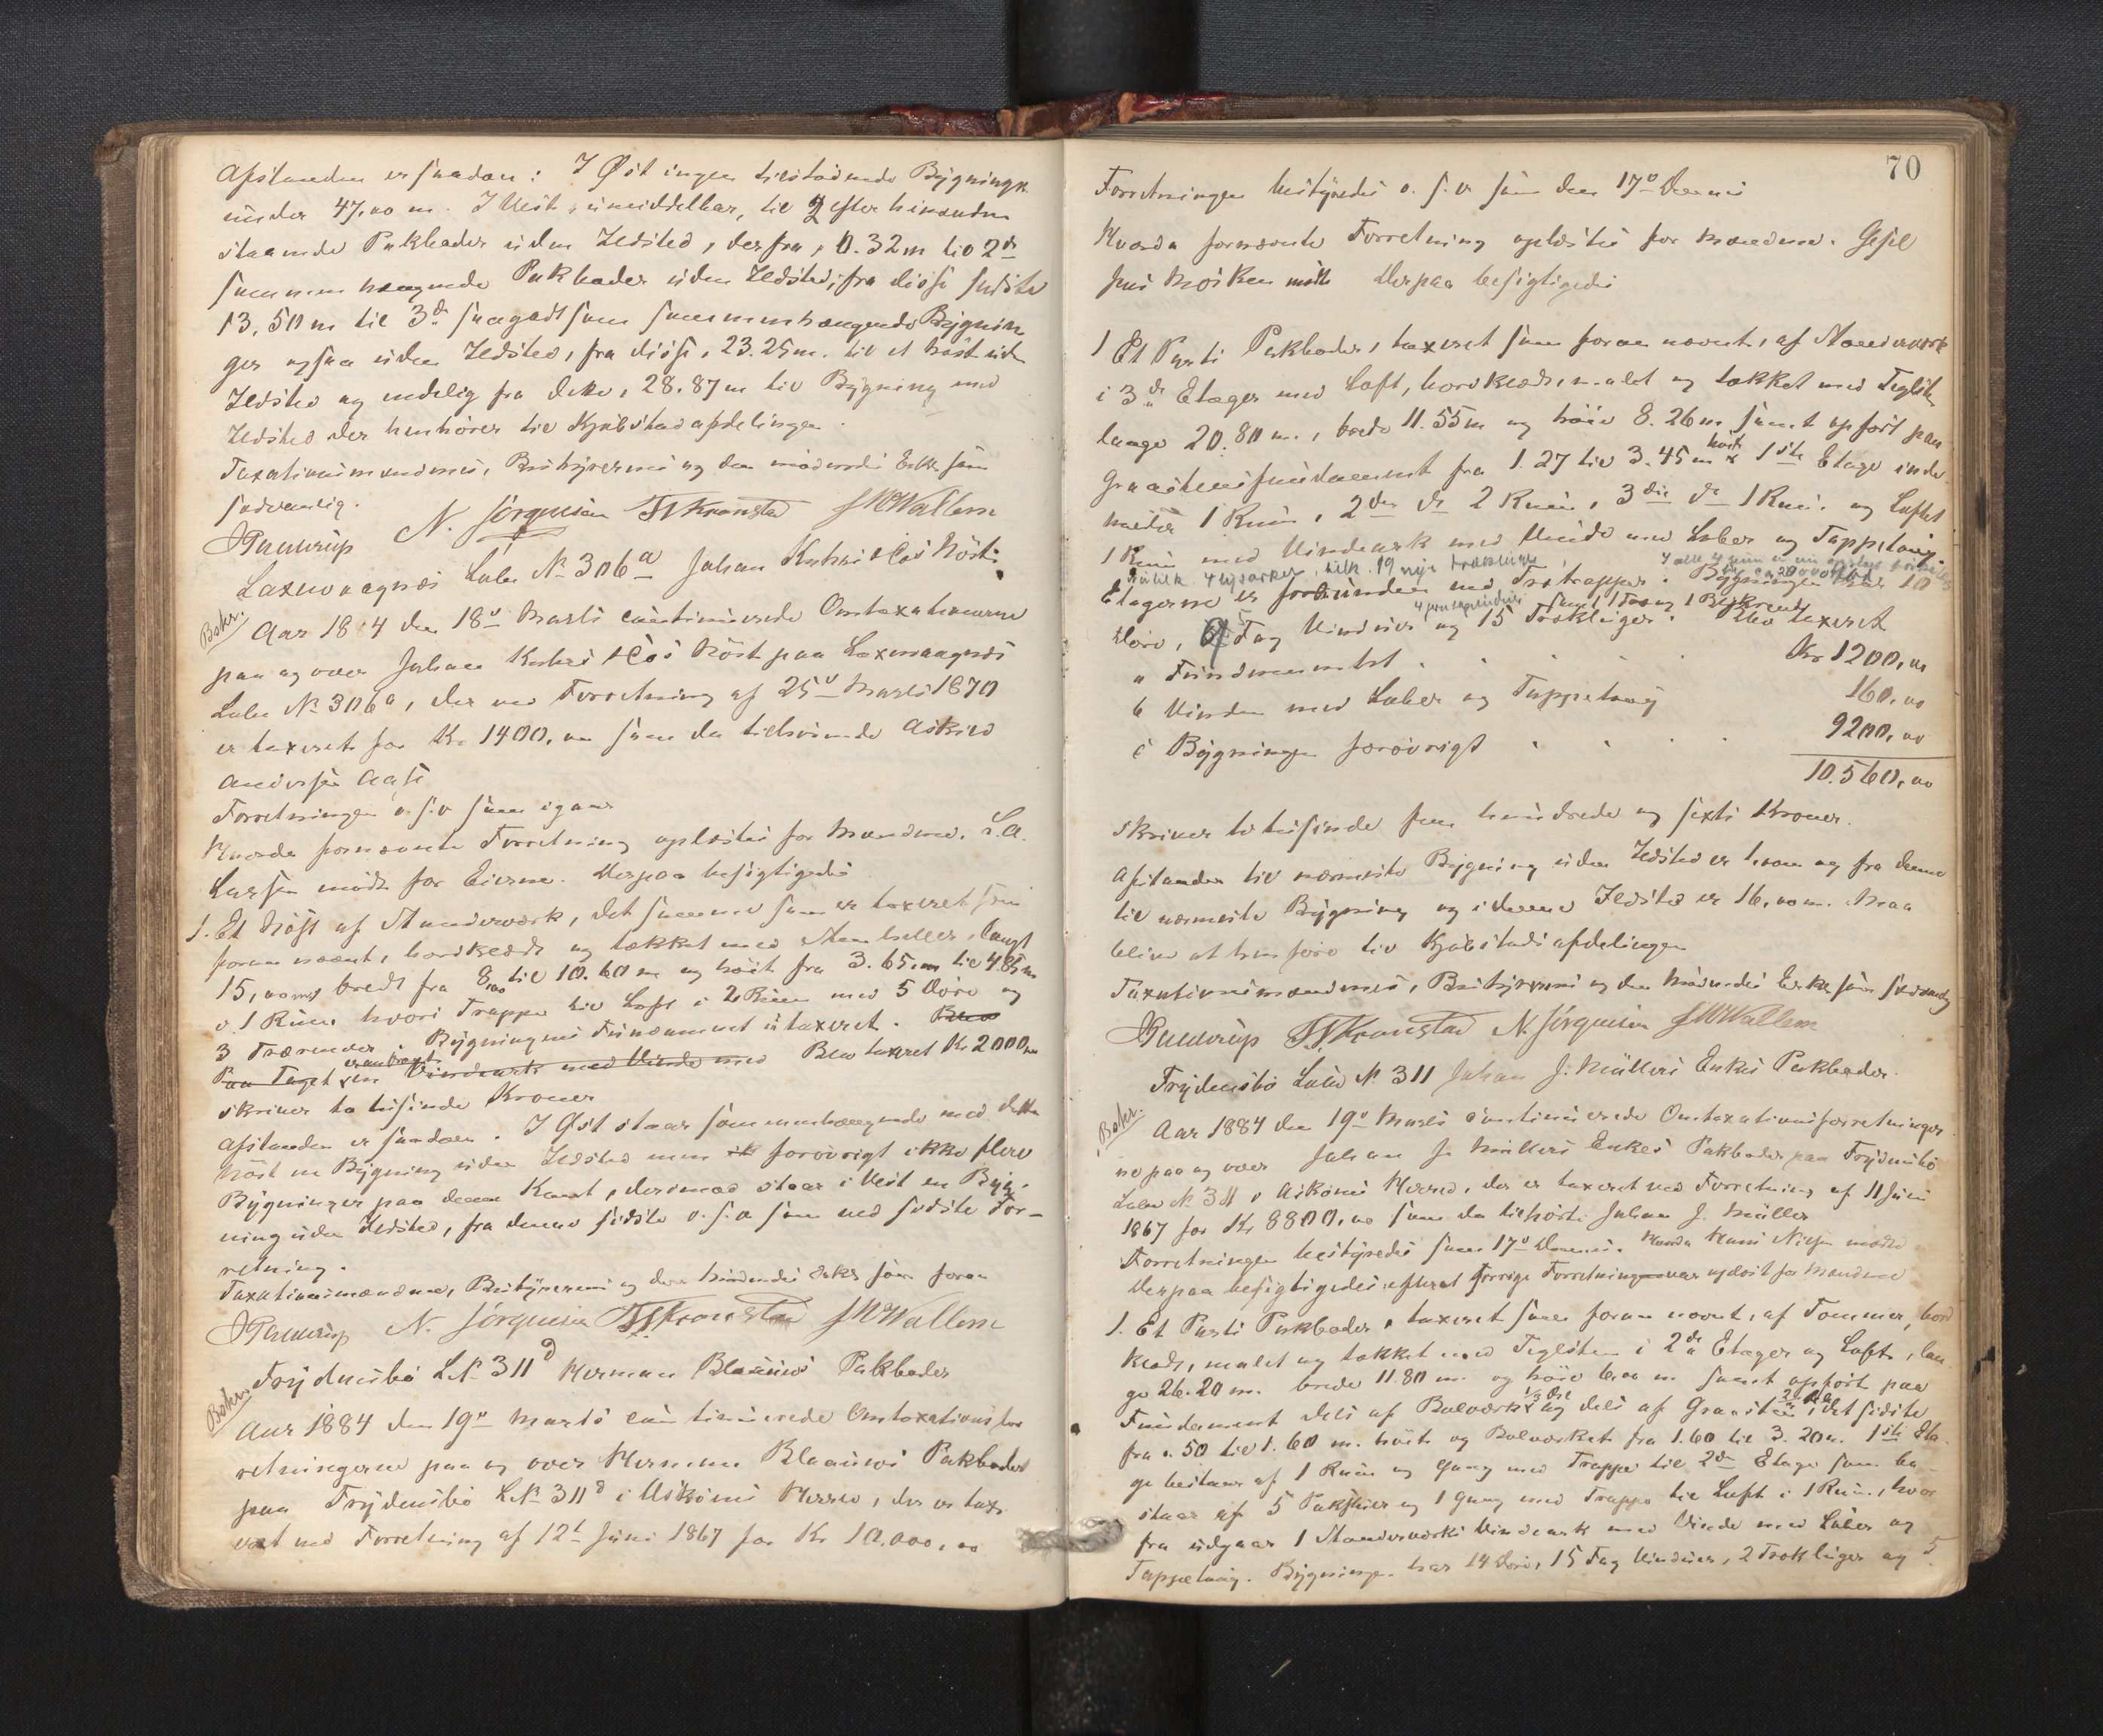 Afstanden er saadan: I Øst ingen tilstødende Bygninger
under 47,00 m. I Vest, umiddelbar, til 2 efter hinanden
staaende Pakboder uden Ildsted, derfra, 0.32 m til 2de
sammenhængende Pakboder uden Ildsted, fra disse sidste
13,50 m til 3de saagodtsom sammenhængende Bygnin
ger ogsaa uden Ildsted, fra disse, 23.25 m. til et Nøst uden
Ildsted og endelig fra dette, 28.87 m til Bygning med
Ildsted der henhører til Kjøbstadafdelingen.
Taxationsmændenes, Bestyrerens og den mødendes Eeke som
sedvanlig.
N. Jörgensen Kronstad Wallem
Laxevaagnæs Løbe No 306a Johan Nøst.
Bokr.
Aar 1884 den 18de Marts continuerede Omtaxationerne
paa og over Johan Nøst paa Laxevaagnæs
Løbe No 306a, der ved Forretning af 25de Marts 1870
er taxeret for Kr. 1400,00 som da tilhørende Askild
Andersen Aase
Forretningen o.s.v som igaar
Hvorda fornævnte Forretning oplæstes for Mændene. L.A.
Larsen mødte for Eierne. Derpaa besigtigedes
1. Et Nøst af Standerværk, det samme som er taxeret som
foran nævnt, bordklædt og tækket med Steenheller, langt
15,00 m, bredt fra 8,00 til 10.60 m og høit fra 3.65 m til 4.85 m
o. 1 Rum hvori Trappe til Loft i 2 Rum med 5 Døre og
3 Trærender. Bygningens Fundament utaxeret. Blev
Paa Taget er anbragt en Vindeark med Vinde med Blev taxeret Kr 2000,00
skriver to tusinde Kroner
Afstanden er saadan. I Øst staar sammenhængende med dette
Nøst en Bygning uden Ildsted men ik forøvrigt ikke flere
Bygninger paa denne Kant, derimod staar i Vest en Byg-
ning uden Ildsted, fra denne sidste o.s.v som ved sidste For-
retning.
Taxationsmændenes, Bestyrerens og den mødendes Eeke som foran
N. Jörgensen Kronstad Wallem
Frydensbø L.No 311d Herman Blaauws Pakboder
Bokr.
Aar 1884 den 19de Marts continuerede Omtaxationsfor
retningerne paa og over Herman Blaauws Pakboder
paa Frydensbø LNo 311d i Askøens Herred, der er taxe
ret ved Forretning af 12te Juni 1867 for Kr 10.000,00
70
Forretningen bestyredes o.s.v som den 17de dennes
Hvorda fornævnte Forretning oplæstes for Mændene.
Jens Mørken mødte Derpaa besigtigedes
1 Et Parti Pakboder, taxeret som foran nævnt, af Standerværk
i 3de Etager med Loft, bordklædt, malet og tækket med Teglsten
lange 20.80 m., brede 11.55 m og høie 8.26 m samt opført paa
Graastensfundament fra 1.27 til 3.45 m høit 1ste Etage inde
holder 1 Rum, 2den do 2 Rum, 3die do 1 Rum. og Loftet
1 Rum med Vindeark med Vinde med Løber og Tappetoug
Etagerne er forbunden med Trætrapper. Bygningen har 10
Døre, Fag Vinduer og 15 Træklüger. Blev taxeret
a Fundamentet . . . Kr 1200,00
b Vinden med Løber og Tappetoug 160,00
c Bygningen forøvrigt . . . 9200,00
10.560,00
skriver ti tusinde fem hundrede og sexti Kroner.
Afstanden til nærmeste Bygning uden Ildsted er 1,00 m og fra denne
til nærmeste Bygning og i denne Ildsted er 16,00 m. Maa
blive at henføre til Kjøbstadsafdelingen
Taxationsmændenes, Bestyrerens og den Mødendes Eeke som sedvanlig
Kronstad N. Jörgensen Wallem
Frydensbø Løbe No 311 Johan J. Müllers Enkes Pakboder.
Bokr.
Aar 1884 den 19de Marts continuerede Omtaxationsforretninger
ne paa og over Johan J. Müllers Enkes Pakboder paa Frydensbø
Løbe No 311 i Askøens Herred, der er taxeret ved Forretning af 11 Juni
1867 for Kr 8800,00 som da tilhørte Johan J. Müller
Forretningen bestyredes som 17de dennes. Hvorda Hans Nilsen mødte
Derpaa besigtigedes efterat forrige Forretning var oplæst for Mændene
1. Et Parti Pakboder, taxeret som foran nævnt, af Tømmer, bord
klædt, malet og tækket med Teglsten i 2de Etager og Loft, lan
ge 26.20 m. brede 11.80 m. og høie 6,00 m samt opført paa
Fundament dels af Bolværk 1/3 Del og dels af Graasten 2/3 Del, det sidste
fra 0.50 til 1.60 m. høit og Bolværket fra 1.60 til 3.20 m. 1ste Eta
ge bestaar af 1 Rum og Gang med Trappe til 2den Etage som be
staar af 5 Pakstuer og 1 Gang med Trappe til Loft i 1 Rum, hvor
fra udgaar 1 Standerværks Vindeark med Vinde med Løber og
Tappetoug. Bygningen har 14 Døre, 15 Fag Vinduer, 2 Træklüger og 5